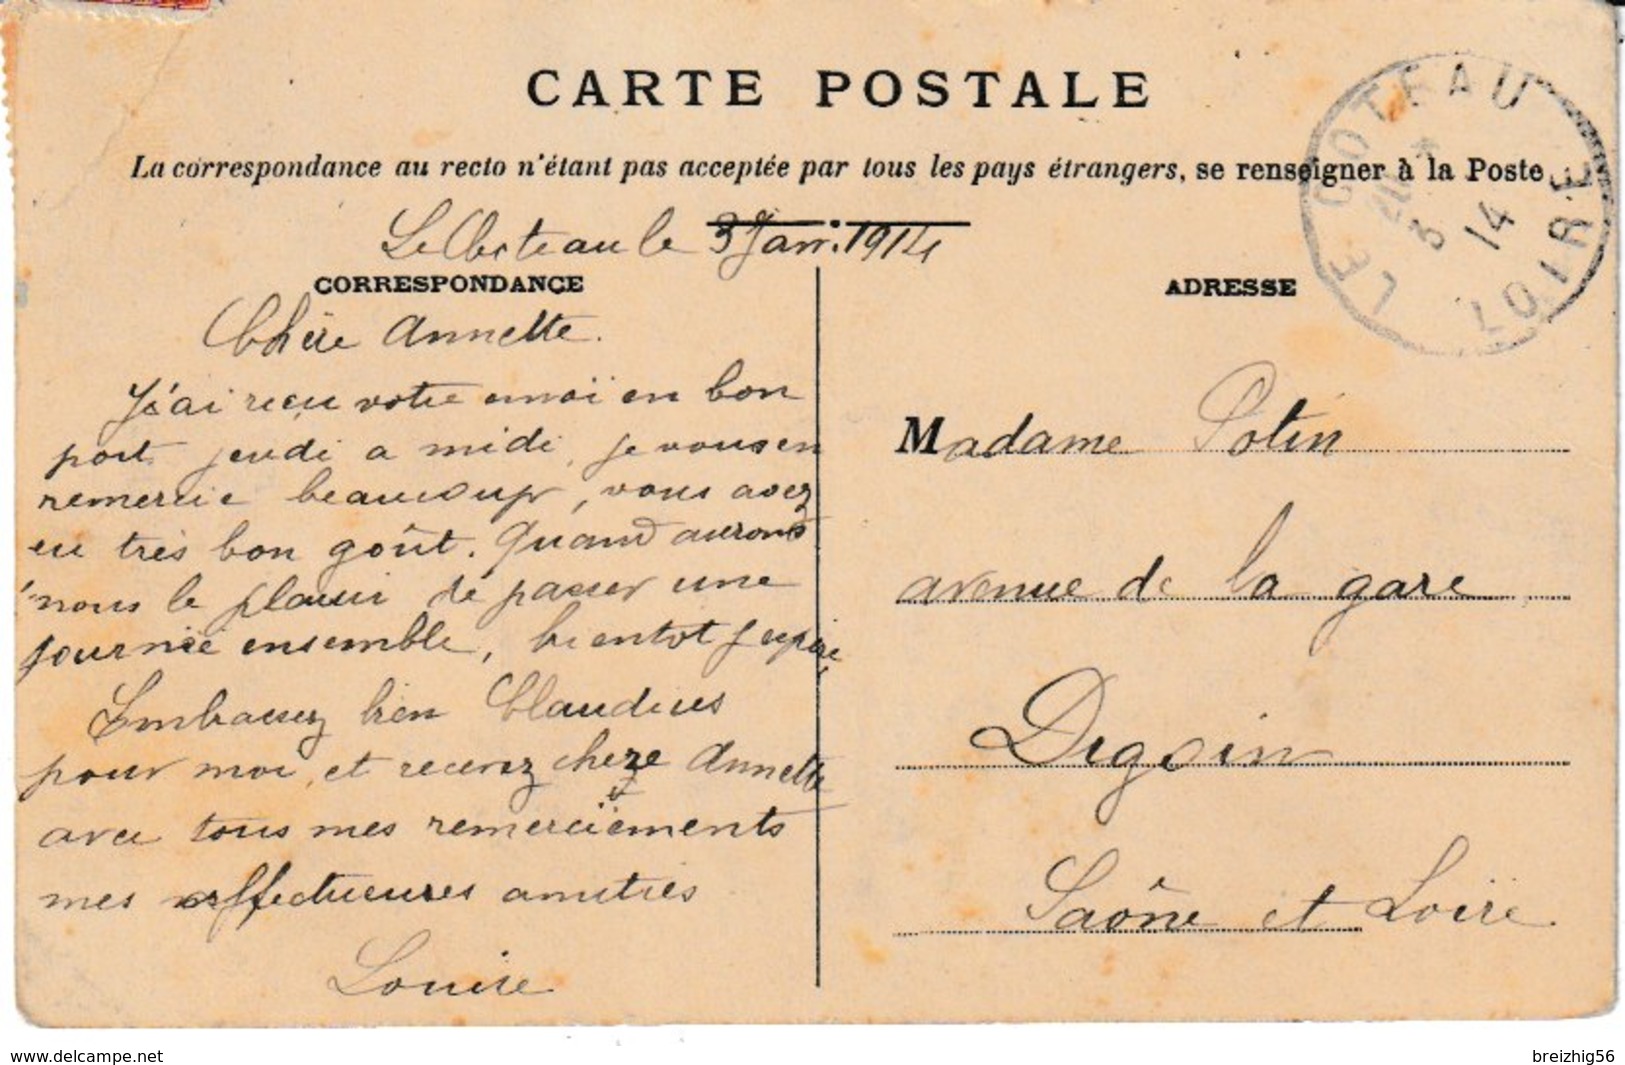 CARTE POSTALE
La correspondance au recto n'étant pas acceptée par tous les pays étrangers, se renseigner à la Poste
Le Coteau le 3 Janv. 1914
CORRESPONDANCE
ADRESSE
LE COTEAU
3
14
LOIRE
Chère Annette.
J'ai reçu votre envoi en bon
port jeudi a midi, je vous en
remercie beaucoup, vous avez
eu très bon goût. Quand aurons
nous le plaisir de passer une
journée ensemble, bientot j'espère,
Embassez bien Claudius
pour moi, et recevez chere Annette
avec tous mes remerciements
mes affectueuses amitiés
Louise
Madame Potin
avenue de la gare
Digoin
Saône et Loire.
www.delcampe.net
breizhig56